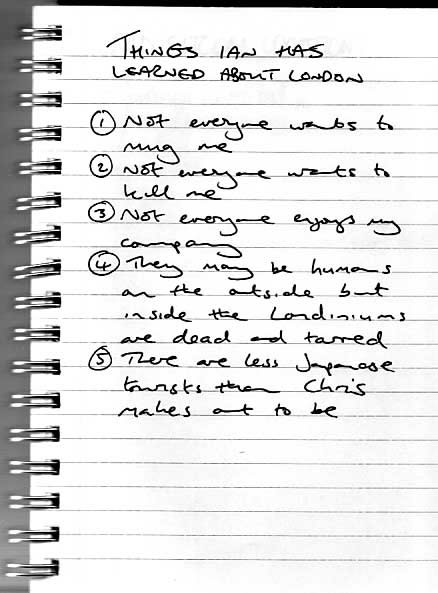 THINGS IAN HAS
LEARNED ABOUT LONDON
① Not everyone wants to
mug me
② Not everyone wants to
kill me
③ Not everyone enjoys my
company
④ They may be humans
on the outside but
inside the Londiniums
are dead and tarred
⑤ There are less Japanese
tourists than Chris
makes out to be